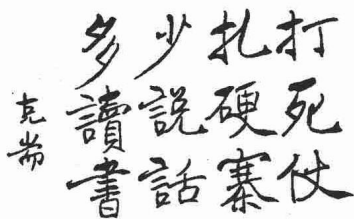 打死仗
扎硬寨
少說話
多讀書
克耑